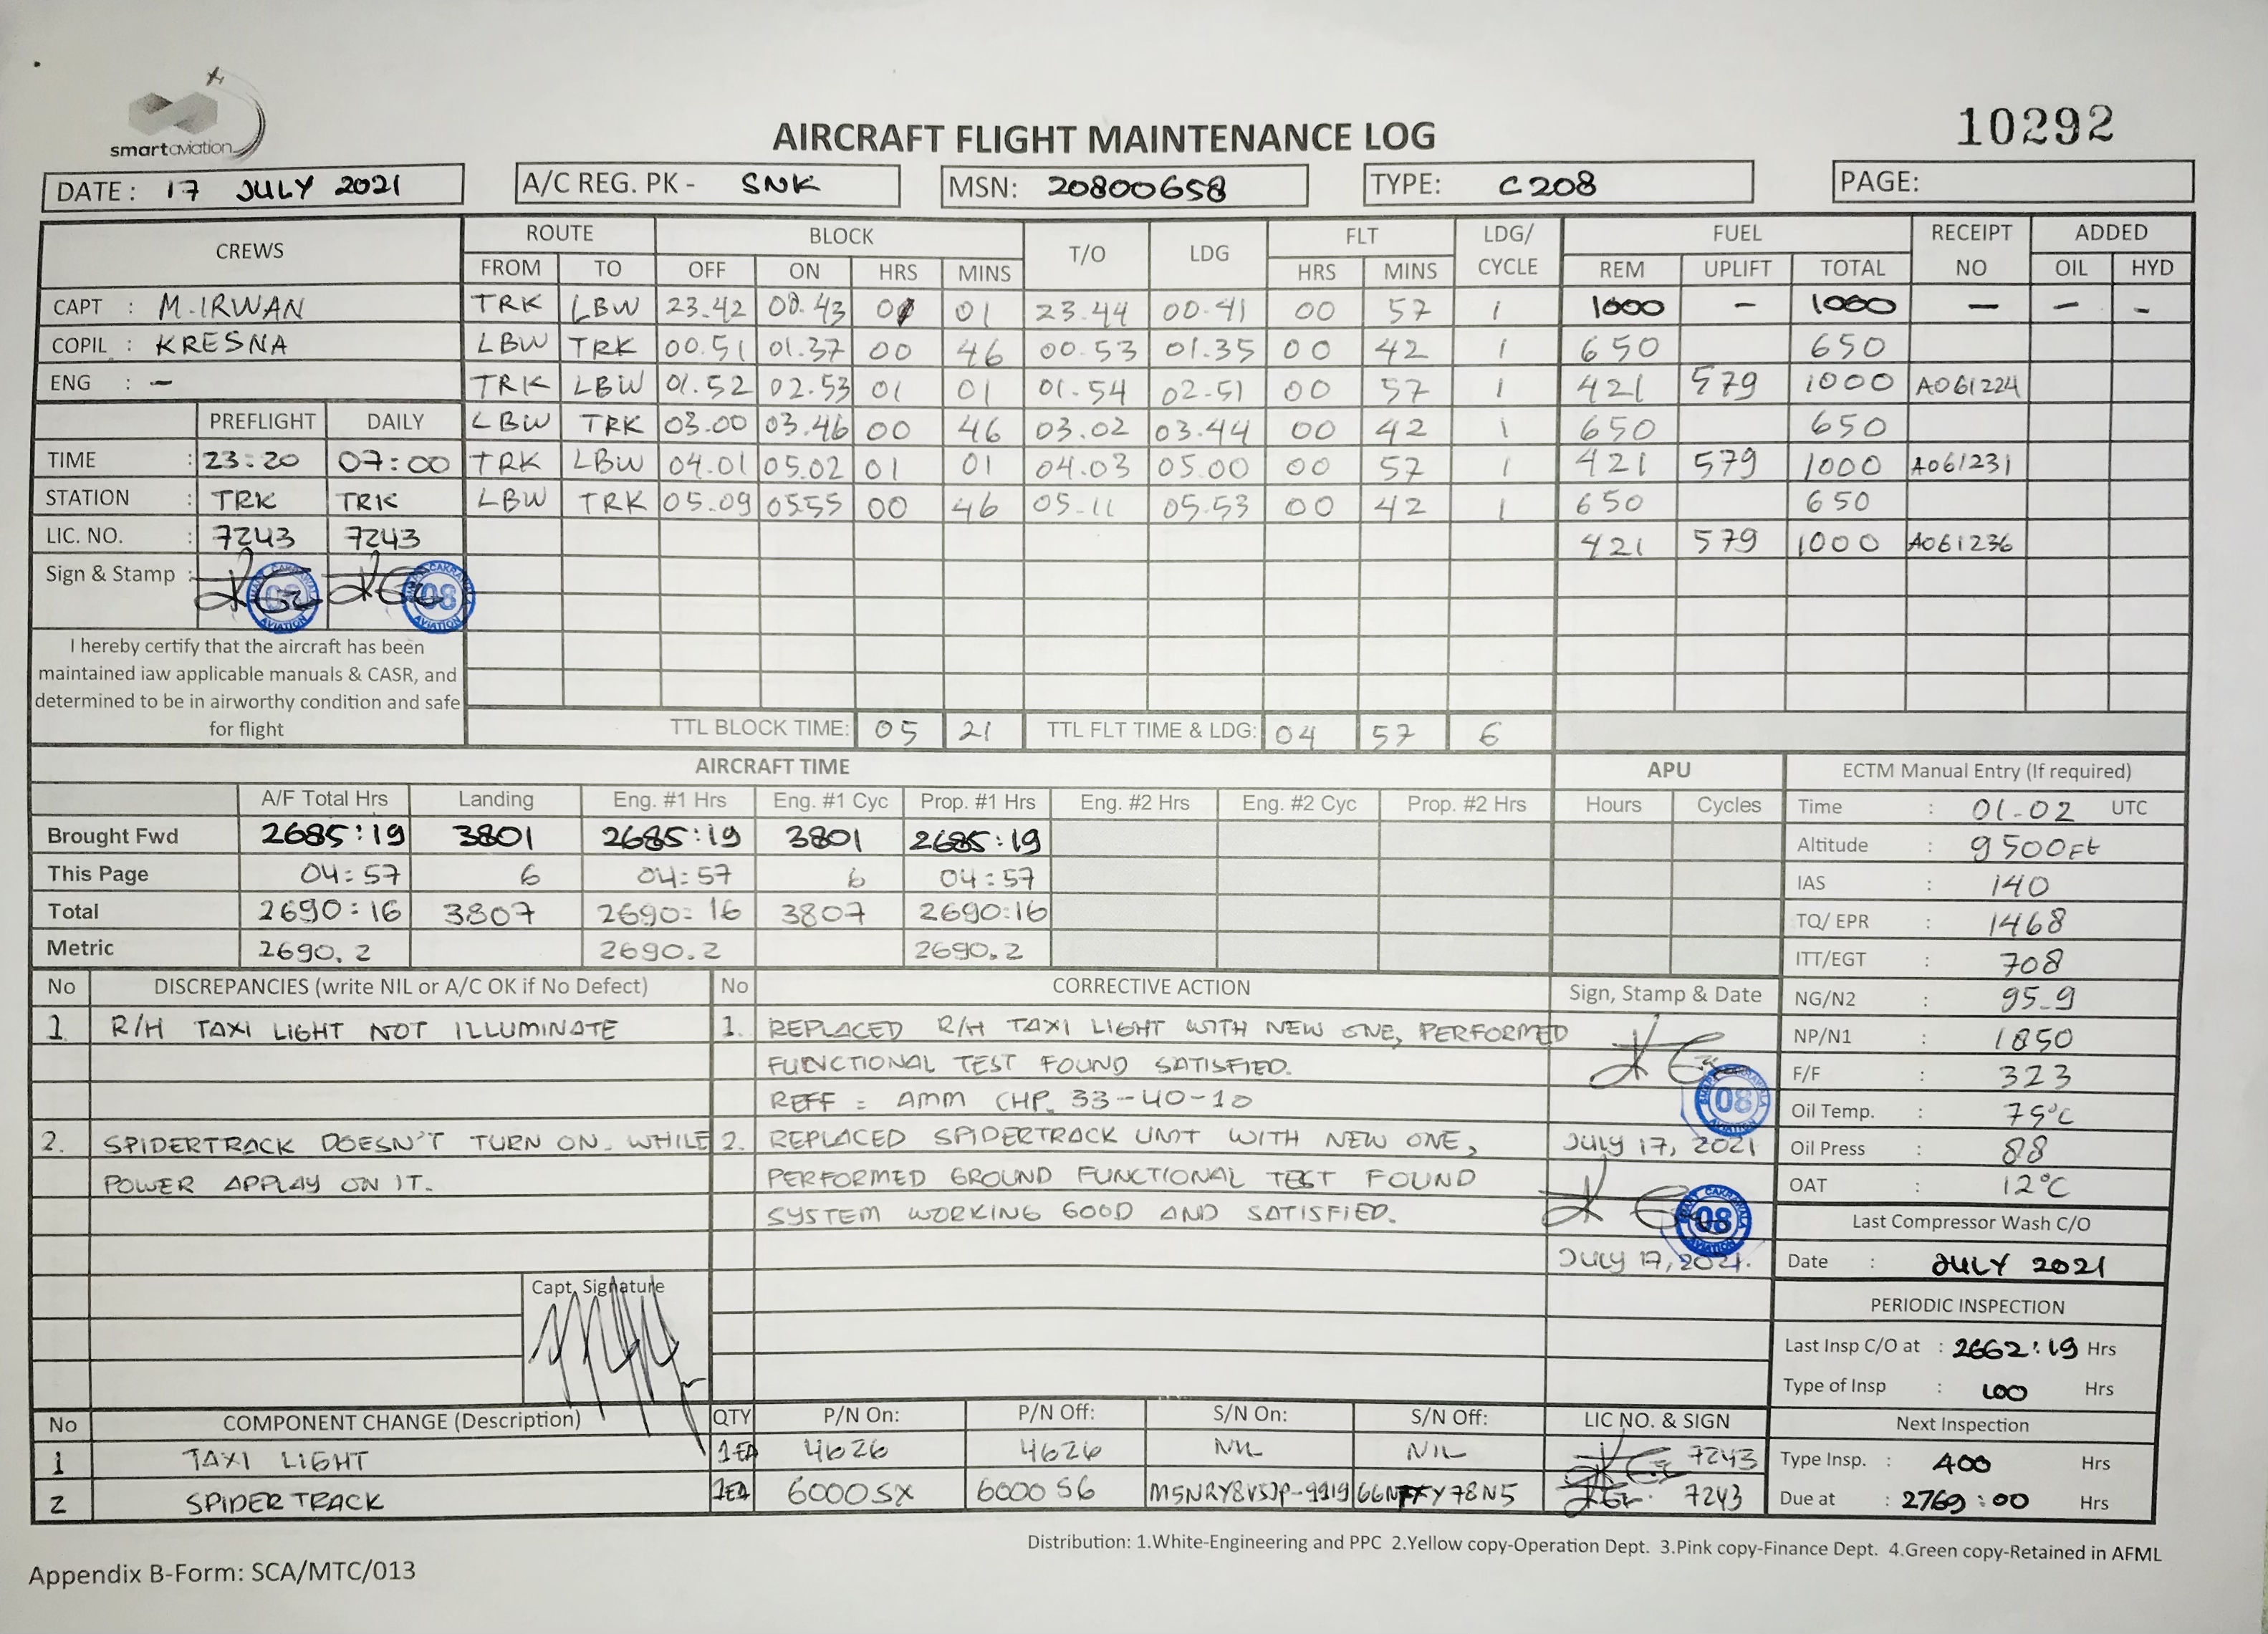 smartaviation
AIRCRAFT FLIGHT MAINTENANCE LOG
10292
DATE : 17 JULY 2021 A/C REG. PK - SNK MSN: 20800658 TYPE: C208 PAGE:
CREWS ROUTE BLOCK T/O LDG FLT LDG/ CYCLE FUEL RECEIPT NO ADDED
FROM TO OFF ON HRS MINS HRS MINS REM UPLIFT TOTAL OIL HYD
CAPT : M.IRWAN TRK LBW 23.42 00.43 01 01 23.44 00.41 00 57 1 1000 – 1000 – – –
COPIL : KRESNA LBW TRK 00.51 01.37 00 46 00.53 01.35 00 42 1 650 650
ENG : – TRK LBW 01.52 02.53 01 01 01.54 02.51 00 57 1 421 579 1000 A061224
PREFLIGHT DAILY LBW TRK 03.00 03.46 00 46 03.02 03.44 00 42 1 650 650
TIME : 23:20 07:00 TRK LBW 04.01 05.02 01 01 04.03 05.00 00 57 1 421 579 1000 A061231
STATION : TRK TRK LBW TRK 05.09 0555 00 46 05.11 05.53 00 42 1 650 650
LIC. NO. : 7243 7243 421 579 1000 A061236
Sign & Stamp : 08
I hereby certify that the aircraft has been
maintained iaw applicable manuals & CASR, and
determined to be in airworthy condition and safe
for flight
TTL BLOCK TIME: 05 21 TTL FLT TIME & LDG: 04 57 6
AIRCRAFT TIME APU ECTM Manual Entry (If required)
A/F Total Hrs Landing Eng. #1 Hrs Eng. #1 Cyc Prop. #1 Hrs Eng. #2 Hrs Eng. #2 Cyc Prop. #2 Hrs Hours Cycles Time : 01.02 UTC
Brought Fwd 2685:19 3801 2685:19 3801 2685:19 Altitude : 9500Ft
This Page 04:57 6 04:57 6 04:57 IAS : 140
Total 2690:16 3807 2690:16 3807 2690:16 TQ/ EPR : 1468
Metric 2690.2 2690.2 2690.2 ITT/EGT : 708
No DISCREPANCIES (write NIL or A/C OK if No Defect) No CORRECTIVE ACTION Sign, Stamp & Date NG/N2 : 95.9
1 R/H TAXI LIGHT NOT ILLUMINATE 1. REPLACED R/H TAXI LIGHT WITH NEW ONE, PERFORMED NP/N1 : 1850
FUNCTIONAL TEST FOUND SATISFIED. 08 F/F : 323
REFF : AMM CHP. 33-40-10 Oil Temp. : 75°C
2. SPIDERTRACK DOESN'T TURN ON. WHILE 2. REPLACED SPIDERTRACK UNIT WITH NEW ONE, JULY 17, 2021 Oil Press : 88
POWER APPLAY ON IT. PERFORMED GROUND FUNCTIONAL TEST FOUND OAT : 12°C
SYSTEM WORKING GOOD AND SATISFIED. 08 Last Compressor Wash C/O
JULY 17, 2021. Date : JULY 2021
Capt, Signature PERIODIC INSPECTION
Last Insp C/O at : 2662:19 Hrs
Type of Insp : 100 Hrs
No COMPONENT CHANGE (Description) QTY P/N On: P/N Off: S/N On: S/N Off: LIC NO. & SIGN Next Inspection
1 TAXI LIGHT 1EA 4626 4626 NIL NIL 7243 Type Insp. : 400 Hrs
2 SPIDER TRACK 1EA 6000SX 6000S6 7243 Due at : 2769:00 Hrs
Distribution: 1.White-Engineering and PPC 2.Yellow copy-Operation Dept. 3.Pink copy-Finance Dept. 4.Green copy-Retained in AFML
Appendix B-Form: SCA/MTC/013